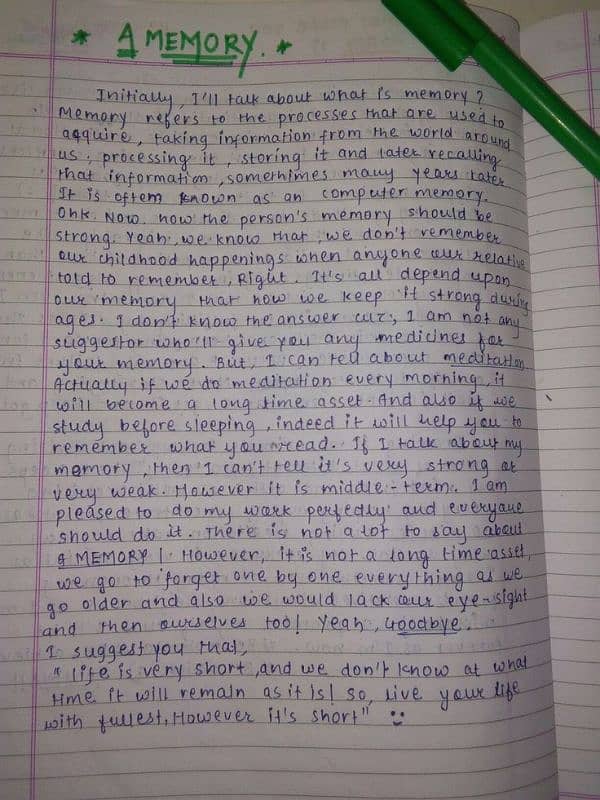 * A MEMORY. *
Initially, I'll talk about what is memory?
Memory refers to the processes that are used to
acquire, taking information from the world around
us, processing it, storing it and later recalling
that information, somethimes many years later
It is oftem known as an computer memory.
Ohk. Now. how the person's memory should be
strong. Yeah, we know that, we don't remember
our childhood happenings when anyone our relative
told to remember, Right. It's all depend upon
our memory that how we keep it strong during
ages. I don't know the answer cuz, I am not any
suggestor who'll give you any medicines for
your memory. But, I can tell about meditation.
Actually if we do meditation every morning, it
will become a long time asset. And also if we
study before sleeping, indeed it will help you to
remember what you read. If I talk about my
memory, then I can't tell it's very strong or
very weak. However it is middle-term. I am
pleased to do my work perfectly and everyone
should do it. There is not a lot to say about
A MEMORY! However, it is not a long time asset,
we go to forget one by one everything as we
go older and also we would lack our eye-sight
and then ourselves too! Yeah, Goodbye.
I suggest you that,
" life is very short, and we don't know at what
time it will remain as it is! So, live your life
with fullest, However it's short" :)